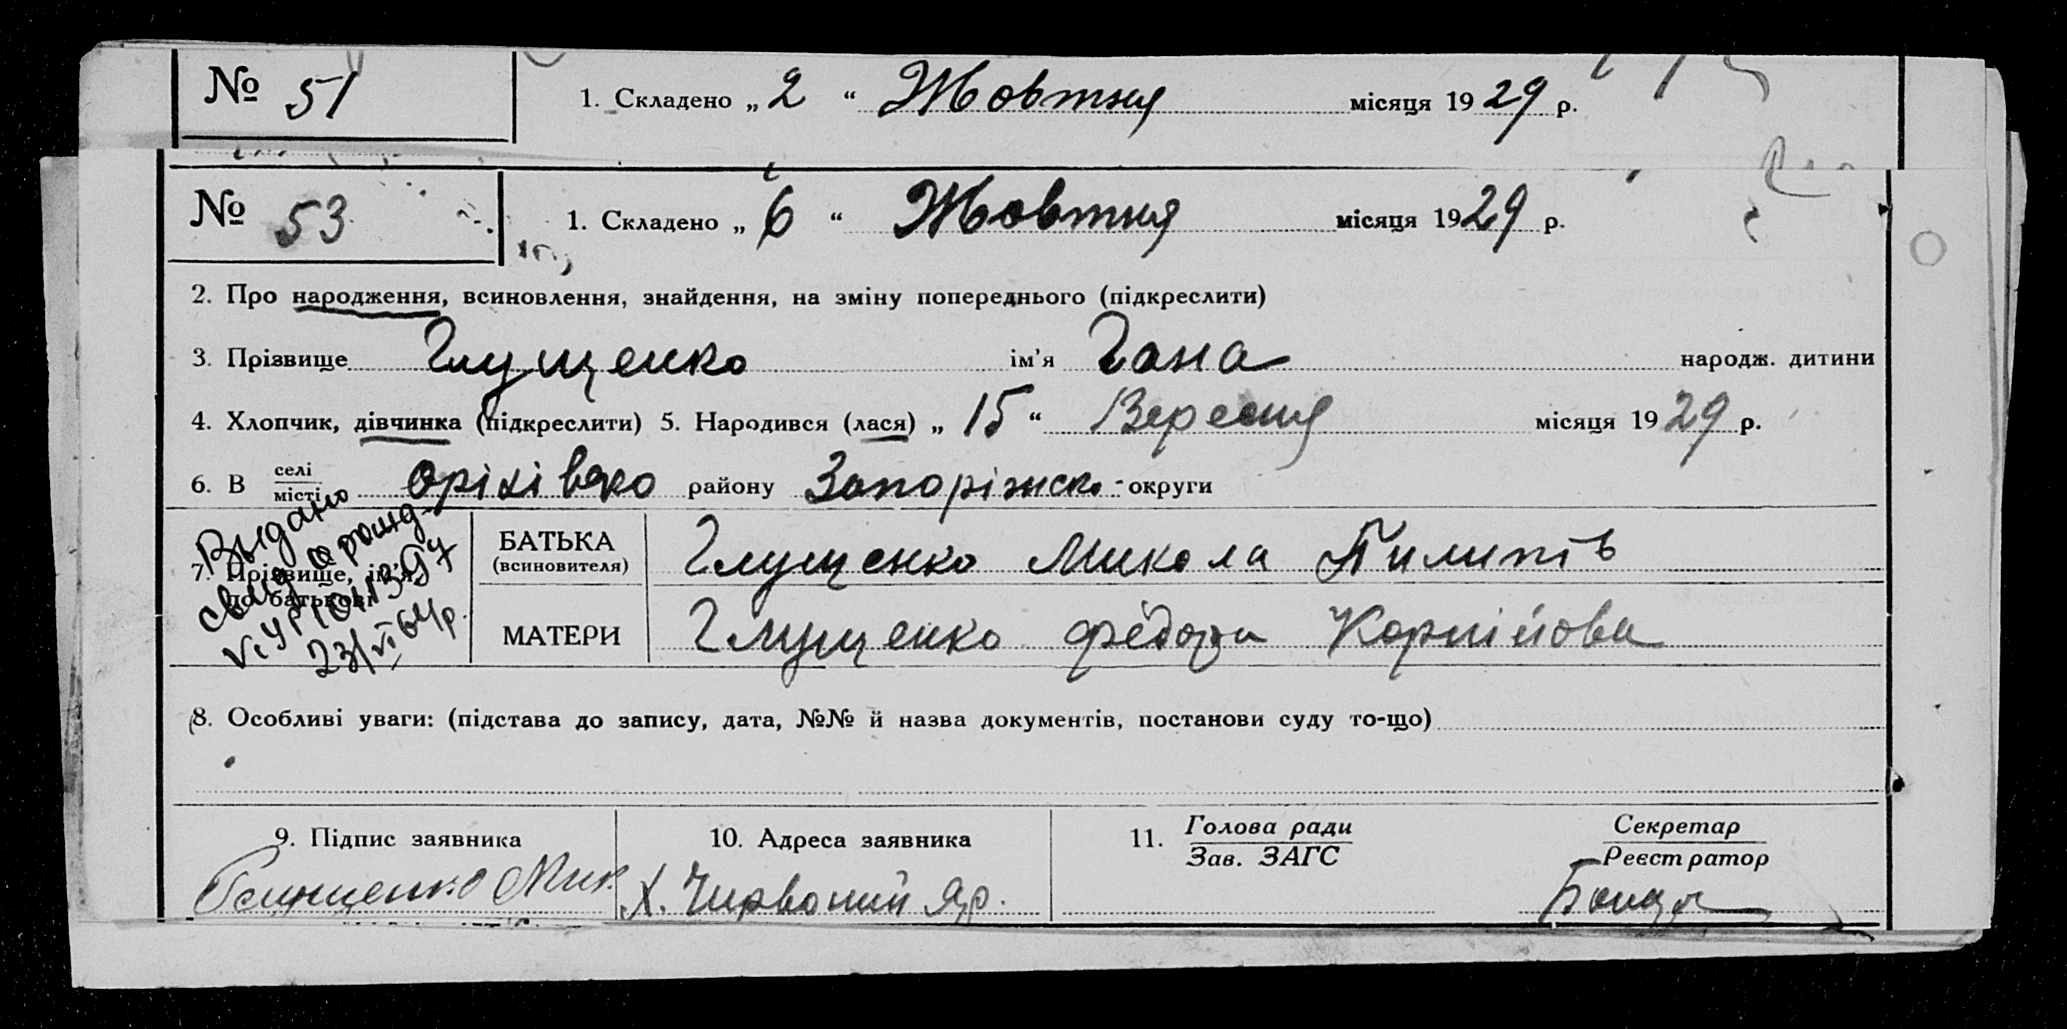 № 51
1. Складено „ 2 “ Жовтня місяця 1929 р.
№ 53
1. Складено „ 6 “ Жовтня місяця 1929 р.
2. Про народження, всиновлення, знайдення, на зміну попереднього (підкреслити)
3. Прізвище Глущенко ім’я Гана народж. дитини
4. Хлопчик, дівчинка (підкреслити) 5. Народився (лася) „ 15 “ Вересня місяця 1929 р.
6. В селі/місті Оріхівсько району Запоріжськ. округи
Выдано
свид о рожд
23/VI 64р.
7. Прізвище, ім’я, по батькові
БАТЬКА (всиновителя) Глущенко Микола Пилипів
МАТЕРИ Глущенко Корнійова
8. Особливі уваги: (підстава до запису, дата, №№ й назва документів, постанови суду то-що)
9. Підпис заявника
Глущенко Мик.
10. Адреса заявника
Х. Чирвоний Яр.
11. Голова ради
Зав. ЗАГС
Секретар
Реєстратор